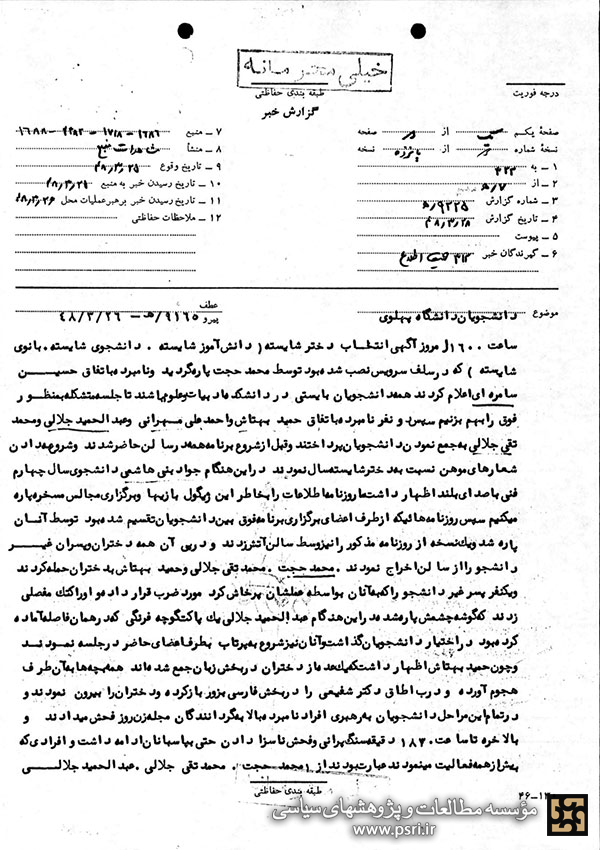 خیلی محرمانه
طبقه بندی حفاظتی
گزارش خبر
درجه فوریت
صفحه یکم از صفحه
نسخه شماره از پانزده نسخه
۱ ـ به ۳۴۲
۲ ـ از ۷/ه
۳ ـ شماره گزارش ۹۲۲۵/ه
۴ ـ تاریخ گزارش ۴۸٫۳٫۲۸
۵ ـ پیوست
۶ ـ گیرندگان خبر
۷ ـ منبع ۱۶۸۶ – ۱۷۱۸ – – ۱۶۸۸
۸ ـ منشأ منبع
۹ ـ تاریخ وقوع ۴۸٫۳٫۲۵
۱۰ ـ تاریخ رسیدن خبر به منبع ۴۸٫۳٫۲۵
۱۱ ـ تاریخ رسیدن خبر برهبرعملیات محل ۴۸٫۳٫۲۶
۱۲ ـ ملاحظات حفاظتی
موضوع دانشجویان دانشگاه پهلوی
عطف
پیرو ۹۱۶۵/ه – ۴۸/۳/۲۶
ساعت ۱۶۰۰ امروز آگهی انتخاب دختر شایسته ( دانش آموز شایسته . دانشجوی شایسته . بانوی
شایسته ) که در سلف سرویس نصب شده بود توسط محمد حجت پاره گردید ونامبرده باتفاق حسین
سامره ای اعلام کردند همه دانشجویان بایستی در دانشکده ادبیات وعلوم باشند تا جلسه متشکله بمنظور
فوق را بهم بزنیم سپس دو نفر نامبرده باتفاق حمید بهتاش واحمد علی مهرانی وعبدالحمید جلالی ومحمد
تقی جلالی به جمع نمودن دانشجویان پرداختند وقبل از شروع برنامه همه در سالن حاضر شدند وشروع به دادن
شعارهای موهن نسبت به دختر شایسته سال نمودند دراین هنگام جواد بنی هاشمی دانشجوی سال چهارم
فنی باصدای بلند اظهار داشت ما روزنامه اطلاعات را بخاطر این ژیگول بازیها وبرگزاری مجالس مسخره پاره
میکنیم سپس روزنامه هائیکه ازطرف اعضای برگزاری برنامه فوق بین دانشجویان تقسیم شده بود توسط آنان
پاره شد ویک نسخه از روزنامه مذکور را نیز وسط سالن آتش زدند و درپی آن همه دختران وپسران غیر
دانشجو را از سالن اخراج نمودند . محمد حجت . محمد تقی جلالی وحمید بهتاش به دختران حمله کردند
ویکنفر پسر غیر دانشجو را که به آنان بواسطه عملشان پرخاش کرد مورد ضرب قرار داده و او را کتک مفصلی
زدند که گوشه چشمش پاره شد در این هنگام عبدالحمید جلالی یک پاکت گوجه فرنگی که در همان فاصله آماده
کرده بود در اختیار دانشجویان گذاشت وآنان نیز شروع به پرتاب بطرف اعضای حاضر در جلسه نمودند
وچون حمید بهتاش اظهار داشت که یک عده از دختران در بخش زبان جمع شده اند همه بچه ها به آن طرف
هجوم آورده و درب اطاق دکتر شفیعی را در بخش فارسی بزور باز کرده ودختران را بیرون نمودند و
در تمام این مراحل دانشجویان به رهبری افراد نامبرده بالا به گردانندگان مجله زن روز فحش میدادند و
بالاخره تا ساعت ۱۸۲۰ دقیقه سنگ پرانی وفحش ناسزا دادن حتی بپاسبانان ادامه داشت و افرادی که
بیش از همه فعالیت مینمودند عبارت بودند از : محمد حجت . محمد تقی جلالی . عبدالحمید جلالی
طبقه بندی حفاظتی
مؤسسه مطالعات و پژوهشهای سیاسی
www.psri.ir